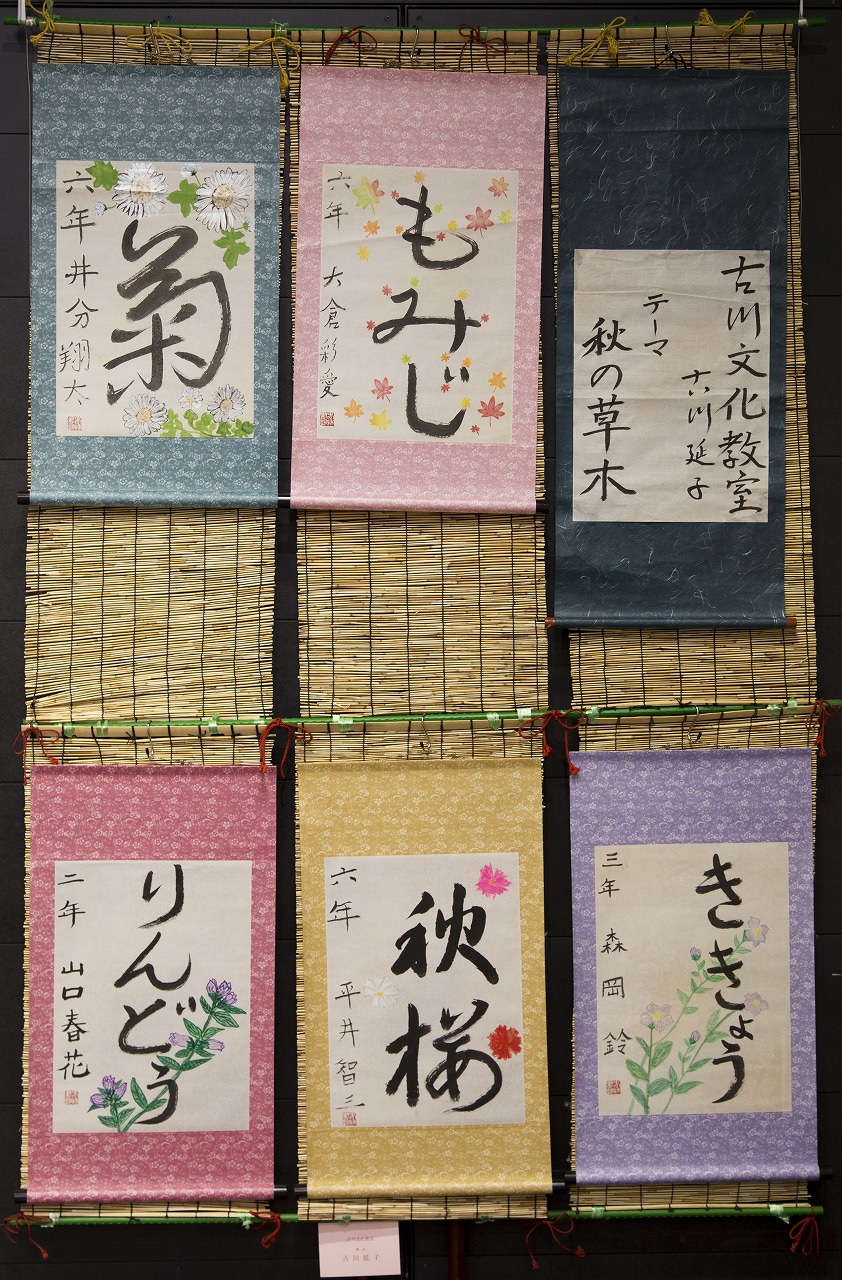 古川文化教室
古川延子
テーマ
秋の草木
もみじ
六年 大倉彩愛
菊
六年 井分翔太
ききょう
三年 森岡鈴
秋桜
六年 平井智三
りんどう
二年 山口春花
古川延子